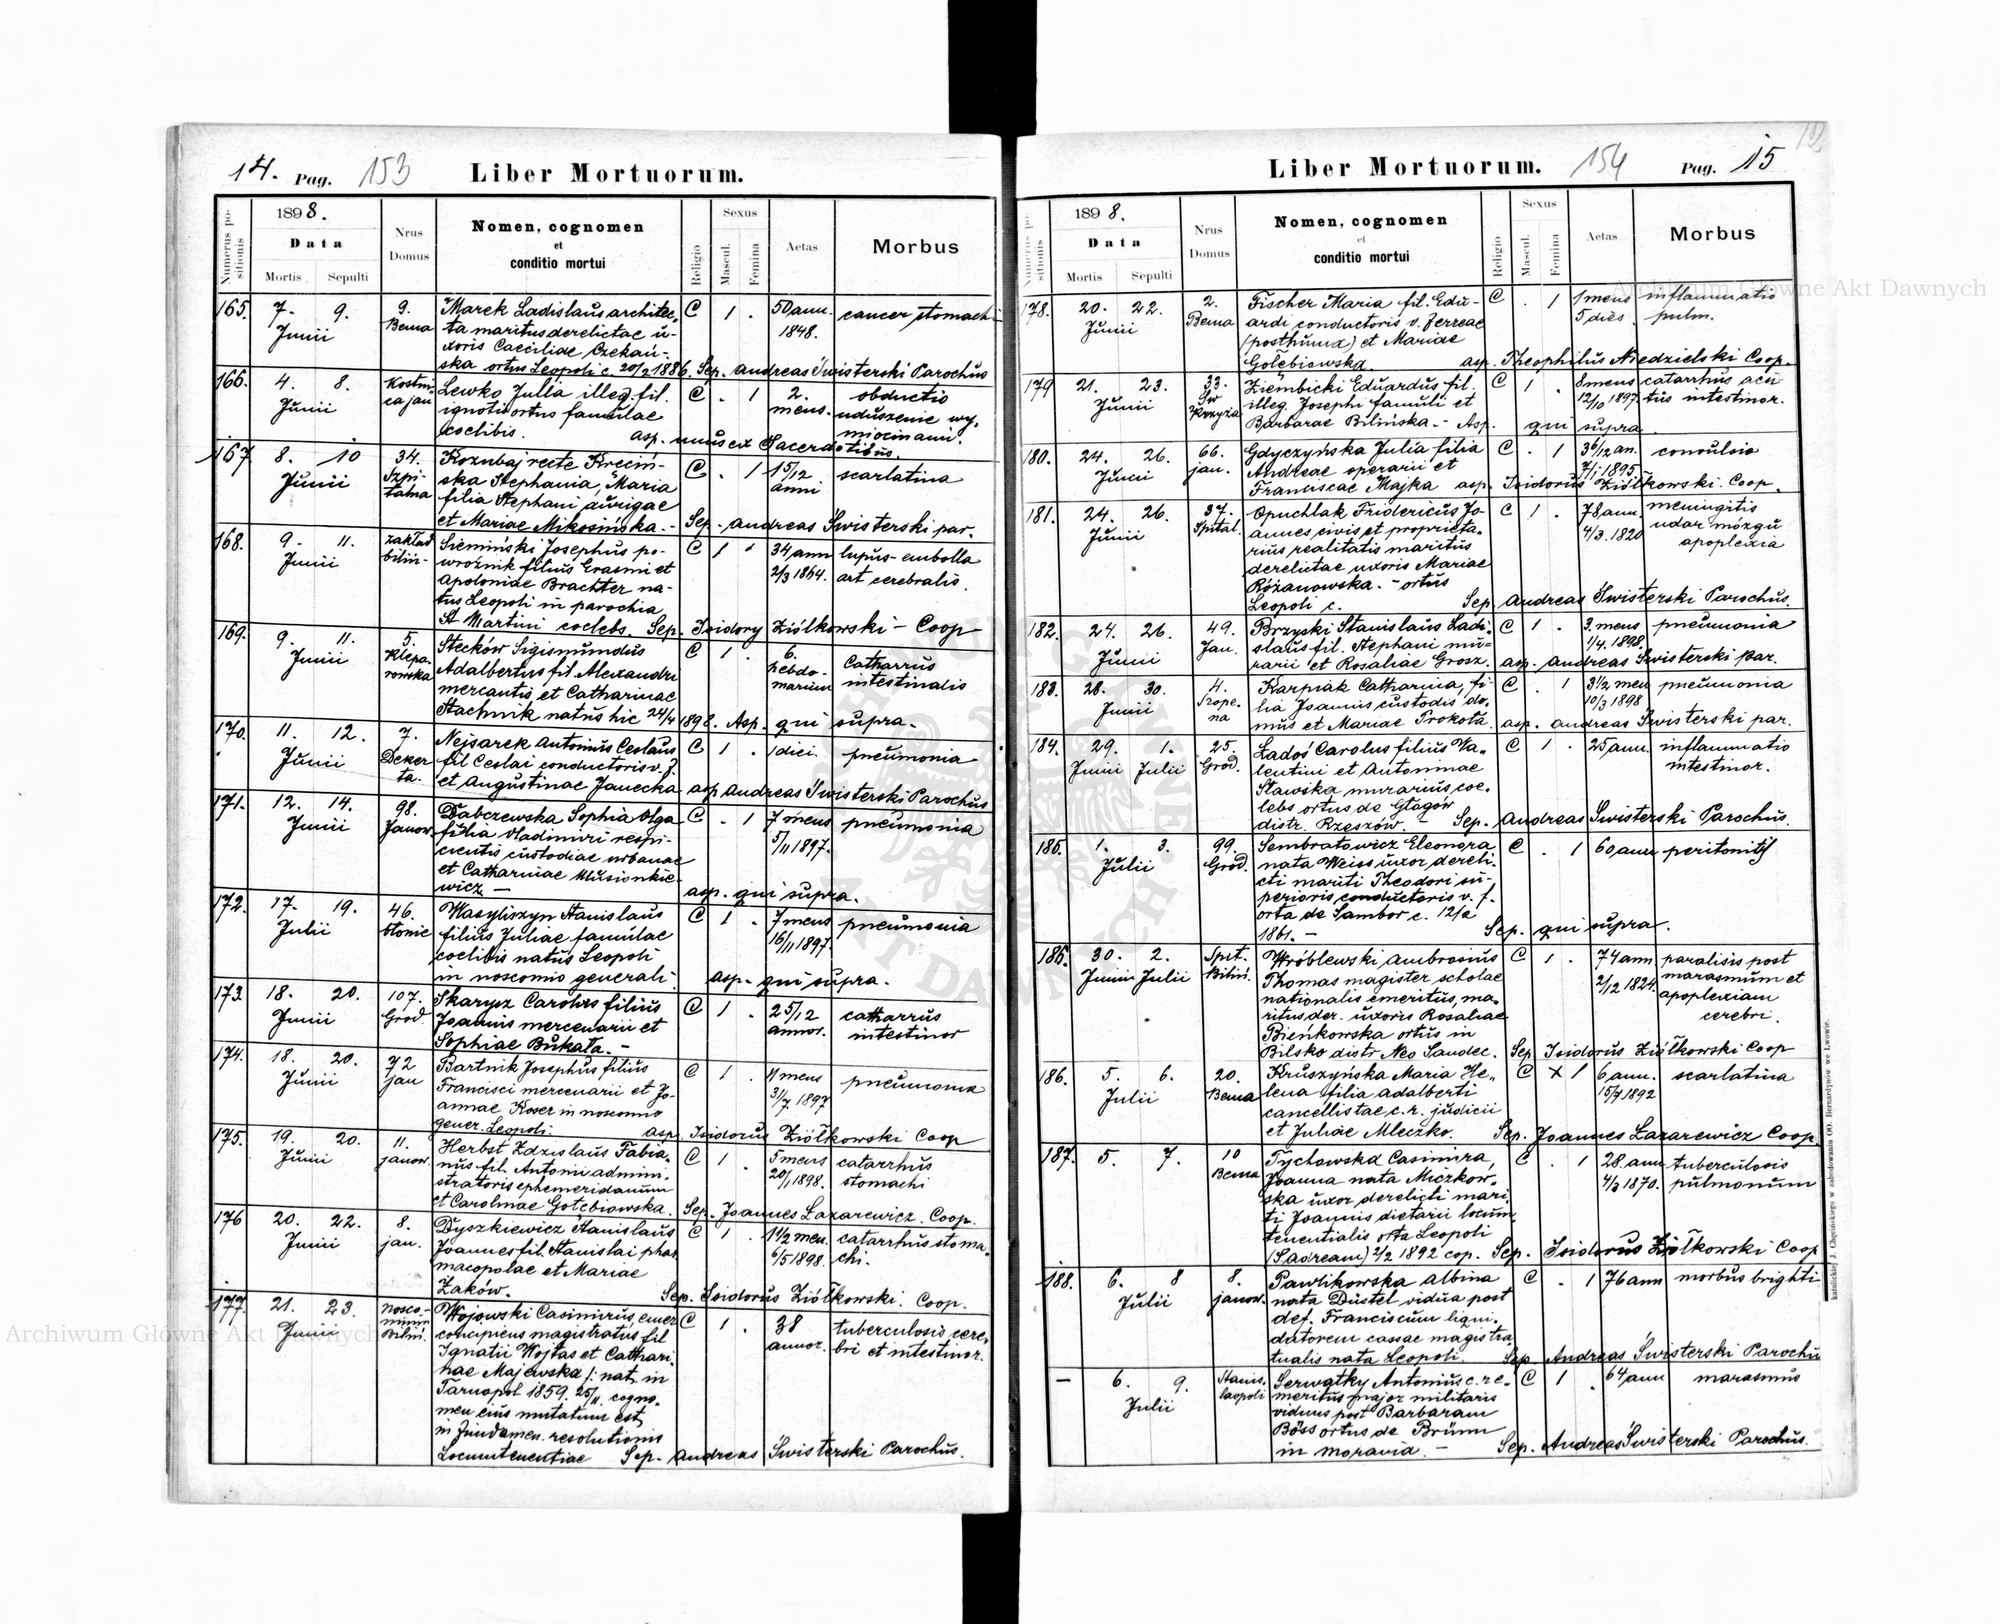 14. Pag. 153 Liber Mortuorum.
1898.
Numerus positionis
Data
Mortis Sepulti
Nrus Domus
Nomen, cognomen
et
conditio mortui
Religio
Sexus
Mascul. Femina
Aetas
Morbus
165. 7. 9. 9. Marek Ladislaus architec- C 1 . 50 ann. cancer stomachi
Junii Bema ta maritus derelictae u- 1848.
xoris Caeciliae Czekań-
ska ortus Leopoli c. 20/2 1886. Sep. Andreas Świsterski Parochus
166. 4. 8. Lewko Julia illeg. fil. C . 1 2. obductio
Junii ignoti ortus famulae mens. uduszenie wy-
coelibis. asp. unus ex Sacerdotibus. miocinami.
167 8. 10 34. Koznbaj recte Krecin- C . 1 15/12 scarlatina
Junii Szpi- ska Stephania, Maria anni
talna filia Stephani aurigae
et Mariae Mikosińska. - Sep. Andreas Świsterski par.
168. 9. 11. zakład Siemiński Josephus po- C 1 34 ann lupus-embolia
Junii biliń- wroźnik filius Erasmi et 2/3 1864. art cerebralis.
Apoloniae Brachter na-
tus Leopoli in parochia
St Martini coelebs. Sep. Isidory Ziółkowski - Coop
169. 9. 11. 5. Steckòw Sigismundus C 1 . 6. Catharrus
Junii Klepa- Adalbertus fil. Alexandri hebdo- intestinalis
rowska mercantis et Catharinae marium
Stachnik natus hic 24/4 1898. Asp. qui supra.
170. 11. 12. 7. Nejsarek Antonius Ceslaus C 1 . 1 diei. pneumonia
Junii Deker- fil Ceslai conductoris v. f.
ta. et Augustinae Janecka asp Andreas Świsterski Parochus
171. 12. 14. 98. Dabczewska Sophia Olga C . 1 7 mens pneumonia
Junii Janow. filia Vladimiri respi- 5/11 1897.
cientis custodiae urbanae
et Catharinae
wicz - asp. qui supra.
172. 17. 19. 46. Wasyliszyn Stanislaus C 1 . 7 mens pneumonia
Julii filius Juliae famulae 16/11 1897
coelibis natus Leopoli
in noscomio generali. asp. qui supra.
173. 18. 20. 107. Skarysz Carolus filius C 1 . 2 5/12 catharrus
Junii Gród. Joannis mercenarii et annor. intestinor
Sophiae Bukata. -
174. 18. 20. 72 Bartnik Josephus filius C 1 . 11 mens pneumonia
Junii jan Francisci mercenarii et Jo- 31/7. 1897
annae Koser in noscomio
gener. Leopoli. asp. Isidorus Ziółkowski Coop
175. 19. 20. 11. Herbst Zdzislaus Fabia- C 1 . 5 mens catarrhus
Junii janow. nus fil. Antonii admini- 20/1 1898. stomachi
stratoris ephemeridanum
et Carolinae Gołebiowska. Sep. Joannes Lazarewicz. Coop.
176 20. 22. 8. Dyszkiewicz Stanislaus C 1 . 1 1/2 men. catarrhus stoma-
Junii jan. Joannes fil. Stanislai phar 6/5 1898. chi.
macopolae et Mariae
Żaków. Sep. Isidorus Ziółkowski. Coop.
177. 21. 23. nosco- Wojowski Casimirus, emer C 1 . 38 tuberculosis cere-
Junii mium concipiens magistratus fil annor. bri et intestinor.
Biliń. Ignatii Wojtas et Cathari-
nae Majewska /: nat. in
Tarnopol 1859. 25/11. cogno-
men eius mutatum est
in fundamen. resolutionis
Locumtenentiae Sep. Andreas Świsterski Parochus.
Liber Mortuorum. 154 Pag. 15
1898.
Numerus positionis
Data
Mortis Sepulti
Nrus Domus
Nomen, cognomen
et
conditio mortui
Religio
Sexus
Mascul. Femina
Aetas
Morbus
178. 20. 22. 2. Fischer Maria fil. Edu- C . 1 1 mens inflammatio
Junii Bema ardi conductoris v. ferreae 5 dies. pulm.
(posthuma) et Mariae
Gołebiowska. asp. Theophilus Niedzielski Coop.
179 21. 23. 33. Ziembicki Eduardus fil. C 1 . 8 mens catarrhus acu
Junii Św illeg. Josephi famuli et 12/10 1897. tus intestinor.
Krzyża Barbarae Bilińska. - Asp. qui supra.
180. 24. 26. 66. Gdyczyńska Julia filia C . 1 3 6/12 an. convulsio
Junii jan. Andreae operarii et 7/1 1895
Franciscae Majka asp. Isidorus Ziółkowski. Coop.
181. 24. 26. 37. Opuchlak Fridericus Jo- C 1 . 78 ann meningitis
Junii Spital. annes civis et proprieta- 4/3. 1820 udar mózgu
rius realitatis maritus apoplexia
derelictae uxoris Mariae
Różanowska. - ortus
Leopoli c. Sep. Andreas Świsterski Parochus.
182. 24. 26. 49. Brzyski Stanislaus Ladi- C 1 . 3. mens pneumonia
Junii Jan. slaus fil. Stephani mu- 1/4. 1898.
rarii et Rosaliae Grosz. asp. Andreas Świsterski par.
183. 28. 30. 4. Karpiak Catharina, fi- C . 1 3 1/2 men pneumonia
Junii lia Joannis custodis do- 10/3 1898
mus et Mariae Prokota. asp. Andreas Świsterski par.
184. 29. 1. 25. Ładoś Carolus filius Va- C 1 . 25 ann. inflammatio
Junii Julii Gród. lentini et Antoninae intestinor.
Sławska murarius coe-
lebs ortus de Głogów
distr. Rzeszów. - Sep. Andreas Świsterski Parochus.
185. 1. 3. 99. Sembratowicz Eleonora C . 1 60 ann peritonitis
Julii Gród. nata Weiss uxor, dereli-
cti mariti Theodori su-
perioris conductoris v. f.
orta de Sambor c. 12/2
1861. - Sep. qui supra.
186. 30. 2. Wróblewski Ambrosius C 1 . 74 ann paralisis post
Junii Julii Biliń. Thomas magister scholae 2/12 1824. marasmum et
nationalis emeritus, ma- apoplexiam
ritus der. uxoris Rosaliae cerebri.
Bieńkowska ortus in
Bilsko distr Neo Sandec. Sep. Isidorus Ziółkowski Coop
186. 5. 6. 20. Kruszyńska Maria He- C x 1 6 ann. scarlatina
Julii Bema lena filia Adalberti 15/7 1892
cancellistae c. r. judicii
et Juliae Mleczko. Sep. Joannes Lazarewicz Coop.
187. 5. 7. 10 Tychowska Casimira, C . 1 28. ann tuberculosis
Bema Joanna nata Miczkow- 4/3 1870. pulmonum
ska uxor, derelicti mari-
ti Joannis dietarii locum-
tenentialis orta Leopoli
(S. Andream) 2/2 1892 cop. Sep. Isidorus Ziółkowski Coop
188. 6. 8 8. Pawlikowska Albina C . 1 76 ann morbus brighti
Julii janow. nata Düstel vidua post
def. Franciscum liqui-
datorem cassae magistra
tualis nata Leopoli. Sep. Andreas Świsterski Parochu
- 6. 9. Stanis- Serwatky Antonius c. r. e- C 1 . 64 ann marasmus
Julii laopoli meritus major militaris
viduus post Barbaram
Böss ortus de Brünn
in Moravia. - Sep. Andreas Świsterski Parochus.
katolickiej J. Chęcińskiego w zabudowaniu OO. Bernardynów we Lwowie.
Archiwum Główne Akt Dawnych
Archiwum Główne Akt Dawnych